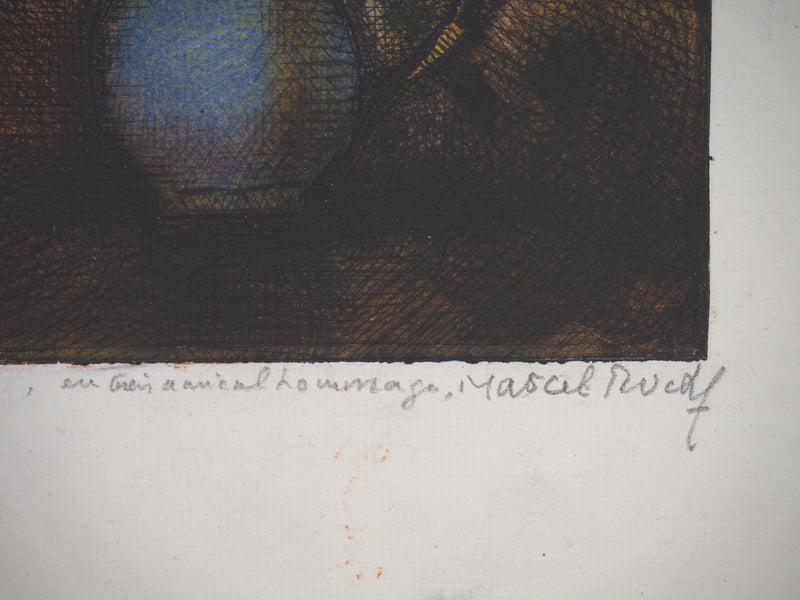 , en très amical hommage, Marcel